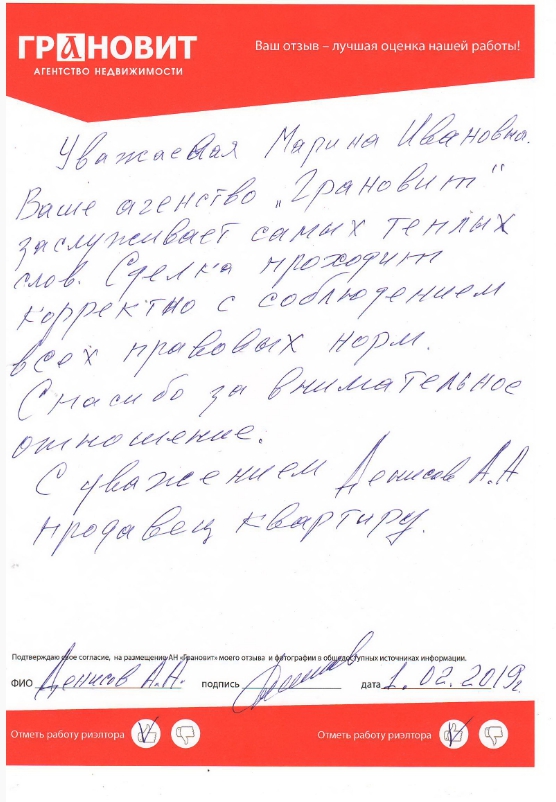 ГРАНОВИТ
АГЕНТСТВО НЕДВИЖИМОСТИ
Ваш отзыв – лучшая оценка нашей работы!
Уважаемая Марина Ивановна.
Ваше агенство „Грановит“
заслуживает самых теплых
слов. Сделка проходит
корректно с соблюдением
всех правовых норм.
Спасибо за внимательное
отношение.
С уважением Денисов А.А
продавец квартиру.
Подтверждаю свое согласие, на размещение АН «Грановит» моего отзыва и фотографии в общедоступных источниках информации.
ФИО Денисов А.А. подпись Денисов дата 1.02.2019г
Отметь работу риэлтора Отметь работу риэлтора